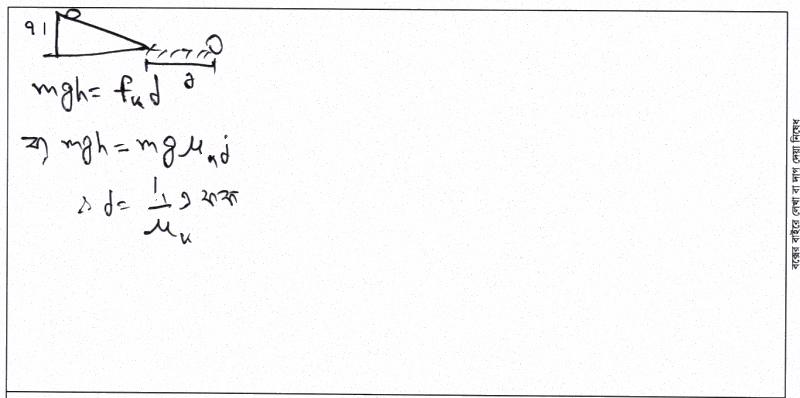 mgh = fₖd
বা, mgh = mg μₖd
∴ d = h/μₖ
বক্সের বাইরে লেখা বা দাগ দেয়া নিষেধ